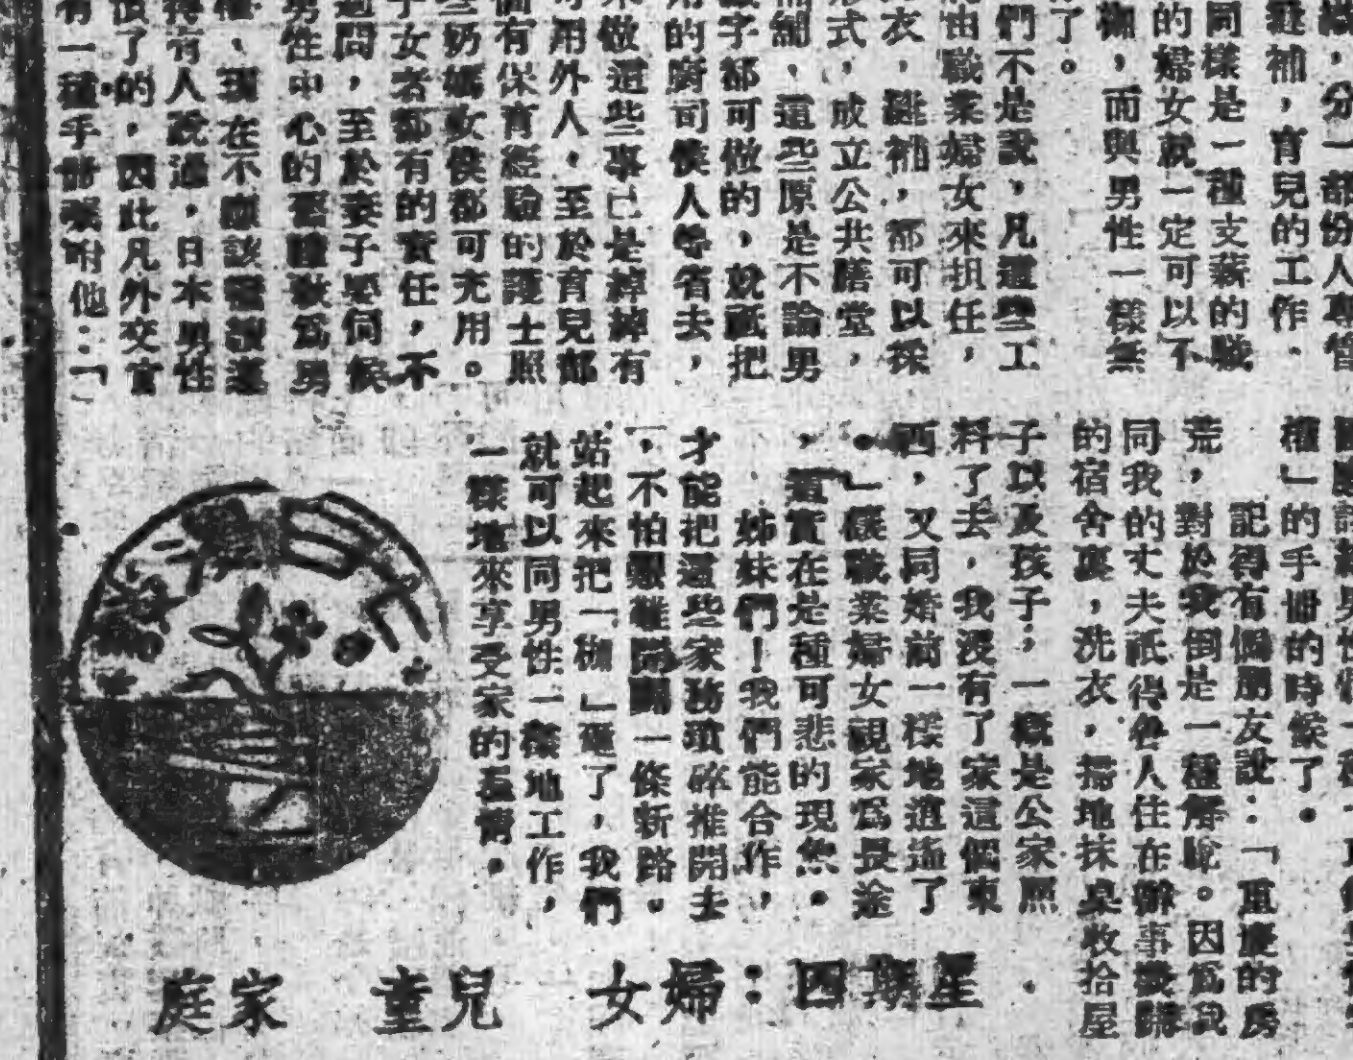 ，分一部份人專管
縫補，育兒的工作，
同樣是一種支薪的職
的婦女就一定可以不
，而與男性一樣無
了。
們不是說，凡這些工
由職業婦女來担任，
衣，縫補，都可以採
形式，成立公共膳堂，
，這些原是不論男
字都可做的，就祇把
用的廚司僕人等省去，
來做這些事已是綽綽有
可用外人，至於育兒部
個有保育經驗的護士照
些奶媽女僕都可充用。
子女者都有的責任，不
過問，至於妻子要伺候
男性中心的舊禮教爲男
，現在不應該
得有人說過，日本男性
慣了的，因此凡外交官
有一種手冊囑咐他：「
權」的手冊的時候了。
記得有個朋友說：「重慶的房
荒，對於我倒是一種解脫。因爲我
同我的丈夫祇得各人住在辦事機關
的宿舍裏，洗衣，掃地抹桌收拾屋
子以及孩子，一概是公家照
料了去，我沒有了家這個東
西，又同婚前一樣地逍遙了
。」從職業婦女視家爲畏途
，這實在是種可悲的現象。
姊妹們！我們能合作，
才能把這些家務瑣碎推開去
，不怕艱難開闢一條新路。
站起來把「枷」砸了，我們
就可以同男性一樣地工作，
一樣地來享受家的溫情。
星期四：婦女　兒童　家庭